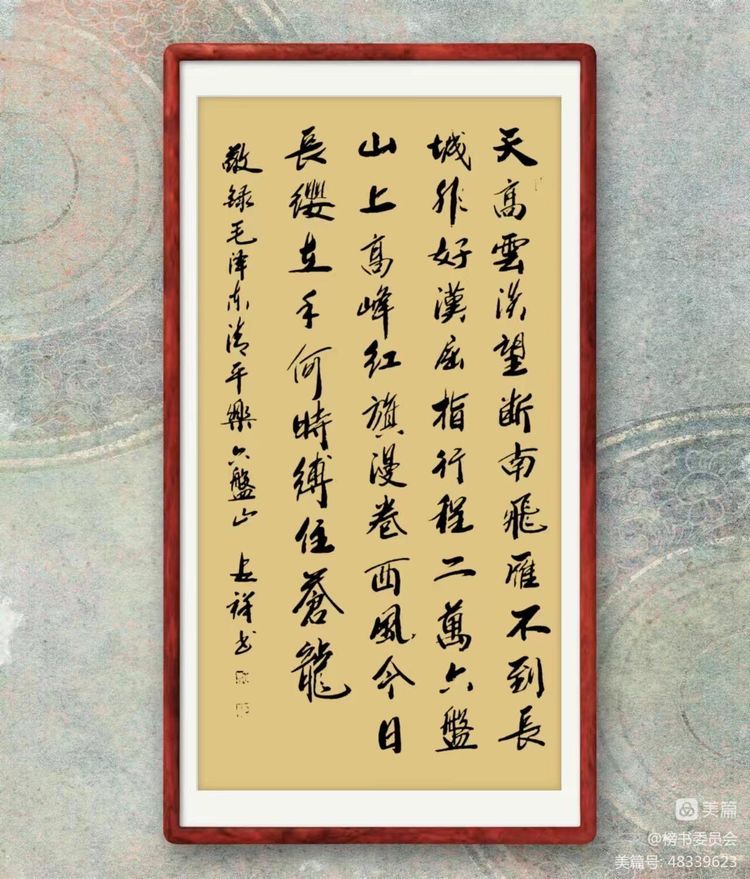 天高雲淡望断南飛雁不到長
城非好漢屈指行程二萬六盤
山上高峰红旗漫卷西風今日
長纓在手何時縛住蒼龍
敬録毛泽东清平樂六盤山 祥书
美篇
@榜书委员会
美篇号: 48339623